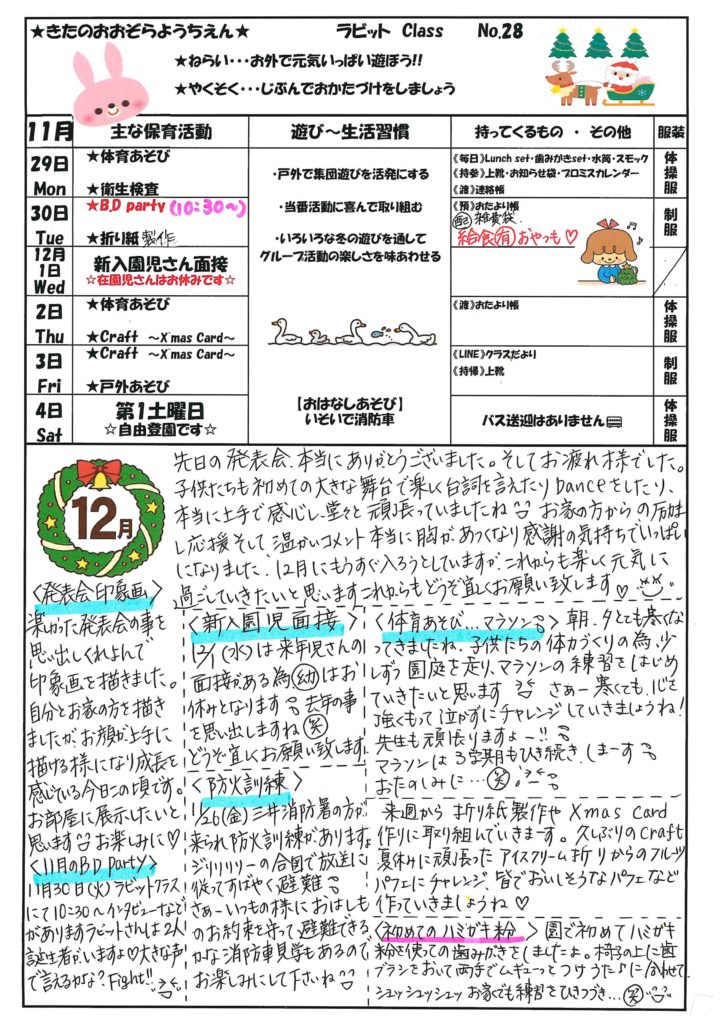 ★きたのおおぞらようちえん★ ラビット Class No.28
★ねらい･･･お外で元気いっぱい遊ぼう!!
★やくそく･･･じぶんでおかたづけをしましょう
11月 主な保育活動 遊び～生活習慣 持ってくるもの ・ その他 服装
29日 Mon
★体育あそび
★衛生検査
30日 Tue
★B.D party (10:30～)
★折り紙製作
12月 1日 Wed
新入園児さん面接
☆在園児さんはお休みです☆
2日 Thu
★体育あそび
★Craft ～X'mas Card～
3日 Fri
★Craft ～X'mas Card～
★戸外あそび
4日 Sat
第1土曜日
☆自由登園です☆
・戸外で集団遊びを活発にする
・当番活動に喜んで取り組む
・いろいろな冬の遊びを通して
グループ活動の楽しさを味あわせる
【おはなしあそび】
いそいで消防車
《毎日》Lunch set・歯みがきset・水筒・スモック
《持参》上靴・お知らせ袋・プロミスカレンダー
《渡》連絡帳
《預》おたより帳
配 雑費袋
給食有 おやつも♡
《渡》おたより帳
《LINE》クラスだより
《持帰》上靴
バス送迎はありません
体操服
制服
体操服
制服
体操服
12月
先日の発表会、本当にありがとうございました。そしてお疲れ様でした。
子供たちも初めての大きな舞台で楽しく台詞を言えたりDanceをしたり、
本当に上手で感心し、堂々と頑張っていましたね お家の方からの
し応援そして温かいコメント本当に胸があつくなり感謝の気持ちでいっぱい
になりました。12月にもうすぐ入ろうとしていますが、これからも楽しく元気に
過ごしていきたいと思いますこれからもどうぞ宜しくお願い致します♡
〈発表会印象画〉
楽かった発表会の事を
思い出しくれよんで
印象画を描きました。
自分とお家の方を描き
ましたが、お顔が上手に
描ける様になり成長を
感じている今日この頃です。
お部屋に展示したいと
思います お楽しみに♡
〈11月のB.D Party〉
11月30日(火)ラビットクラス
にて10:30～インタビューなど
がありますラビットさんは2人
誕生者がいますよ♡大きな声
で言えるかな？Fight!!
〈新入園児面接〉
12/1(水)は来年児さんの
面接がある為(幼)はお
休みとなります 去年の事
を思い出しますね(笑)
どうぞ宜しくお願い致します
〈防火訓練〉
11/26(金)三井消防署の方が
来られ防火訓練があります。
ジリリリリーの合図で放送に
従ってすばやく避難
さぁーいつもの様におはしも
のお約束を守って避難できる
かな？消防車見学もあるので
お楽しみにして下さいね
〈体育あそび…マラソン〉朝、夕とても寒くな
ってきましたね、子供たちの体力づくりの為、少
しずつ園庭を走り、マラソンの練習をはじめ
ていきたいと思います さぁー寒くても心を
強くもって泣かずにチャレンジしていきましょうね！
先生も頑張りますよー!!
マラソンは3学期もひき続きしまーす
おたのしみに…(笑)
来週から折り紙製作やXmas Card
作りに取り組んでいきまーす。久しぶりのCraft
夏休みに頑張ったアイスクリーム折りからのフルーツ
パフェにチャレンジ、皆でおいしそうなパフェなど
作っていきましょうね♡
〈初めてのハミガキ粉〉園で初めてハミガキ
粉を使っての歯みがきをしましたよ。椅子の上に歯
ブラシをおいて両手でムギューっとつけうた♪に合わせて
シュッシュッシュッ お家でも練習をひきつづき…(笑)